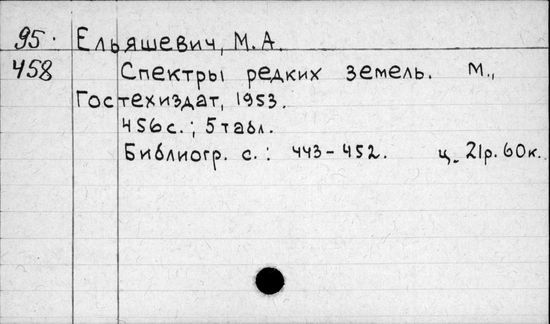 95. Ельяшевич, М.А.
458 Спектры редких земель. М.,
Гостехиздат, 1953.
456 с.; 5 табл.
Библиогр. с.: 443-452. ц. 21р. 60к.